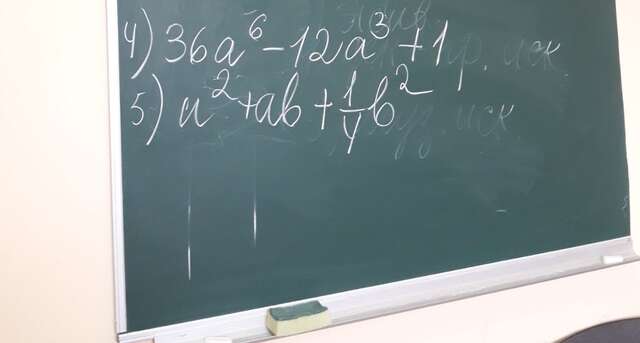 4) 36a⁶ - 12a³ + 1
5) a² + ab + 1/4 b²